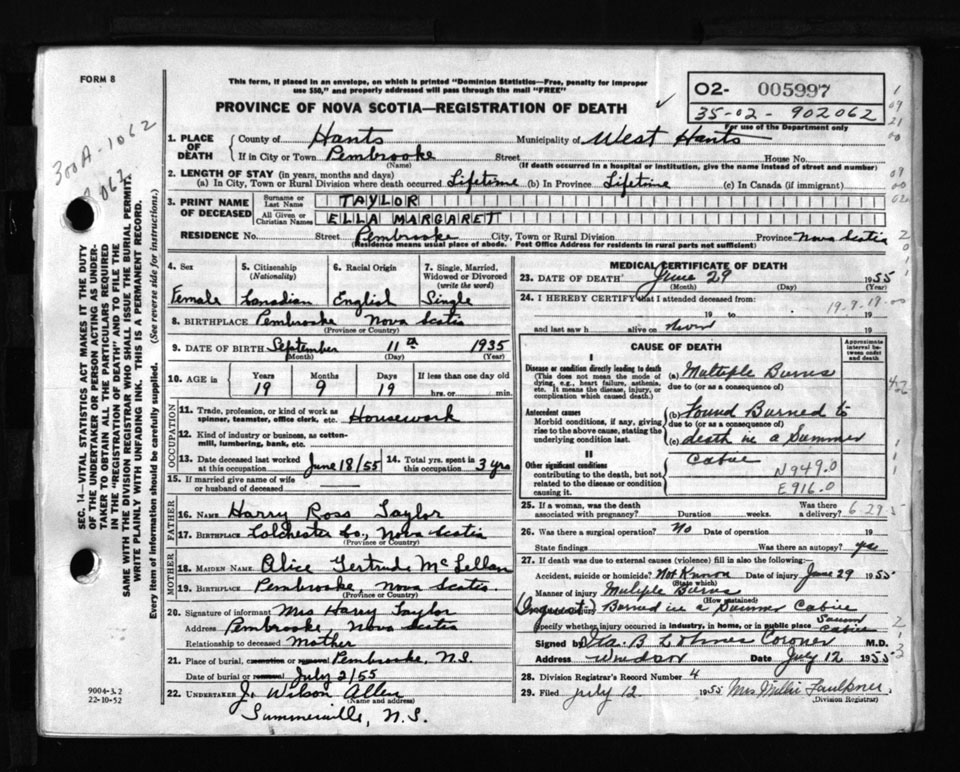 FORM 8
This form, if placed in an envelope, on which is printed "Dominion Statistics—Free, penalty for improper
use $50," and properly addressed will pass through the mail "FREE"
PROVINCE OF NOVA SCOTIA—REGISTRATION OF DEATH
O2- 005997
35-02-902062
For use of the Department only
300A-1062
SEC. 14—VITAL STATISTICS ACT MAKES IT THE DUTY
OF THE UNDERTAKER OR PERSON ACTING AS UNDER-
TAKER TO OBTAIN ALL THE PARTICULARS REQUIRED
IN THE "REGISTRATION OF DEATH" AND TO FILE THE
SAME WITH THE DIVISION REGISTRAR WHO SHALL ISSUE THE BURIAL PERMIT.
WRITE PLAINLY WITH UNFADING INK. THIS IS A PERMANENT RECORD.
Every item of information should be carefully supplied. (See reverse side for instructions.)
1. PLACE OF DEATH County of Hants Municipality of West Hants
If in City or Town Pembrooke Street House No.
(Name) (If death occurred in a hospital or institution, give the name instead of street and number)
2. LENGTH OF STAY (in years, months and days)
(a) In City, Town or Rural Division where death occurred Lifetime (b) In Province Lifetime (c) In Canada (if immigrant)
3. PRINT NAME OF DECEASED Surname or Last Name TAYLOR
All Given or Christian Names ELLA MARGARET
RESIDENCE No. Street Pembrooke City, Town or Rural Division Province Nova Scotia
(Residence means usual place of abode. Post Office Address for residents in rural parts not sufficient)
4. Sex 5. Citizenship (Nationality) 6. Racial Origin 7. Single, Married, Widowed or Divorced (write the word)
Female Canadian English Single
8. BIRTHPLACE Pembrooke Nova Scotia
(Province or Country)
9. DATE OF BIRTH September 11th 1935
(Month) (Day) (Year)
10. AGE in Years Months Days If less than one day old
19 9 19 hrs. or min.
OCCUPATION
11. Trade, profession, or kind of work as spinner, teamster, office clerk, etc. Housework
12. Kind of industry or business, as cotton-mill, lumbering, bank, etc.
13. Date deceased last worked at this occupation June 18/55 14. Total yrs. spent in this occupation 3 yrs
15. If married give name of wife or husband of deceased
FATHER
16. NAME Harry Ross Taylor
17. BIRTHPLACE Colchester Co., Nova Scotia
(Province or Country)
MOTHER
18. MAIDEN NAME Alice Gertrude McLellan
19. BIRTHPLACE Pembrooke Nova Scotia.
(Province or Country)
20. Signature of informant Mrs Harry Taylor
Address Pembrooke, Nova Scotia
Relationship to deceased Mother
21. Place of burial, cremation or removal Pembrooke, N.S.
Date of burial or removal July 2/55
22. UNDERTAKER J. Wilson Allen
(Name and address)
Summerville, N.S.
9004-3.2
22-10-52
MEDICAL CERTIFICATE OF DEATH
23. DATE OF DEATH June 29 1955
(Month) (Day) (Year)
24. I HEREBY CERTIFY that I attended deceased from:
19 to 19
and last saw h alive on 19
CAUSE OF DEATH
Approximate interval between onset and death
I
Disease or condition directly leading to death (a) Multiple Burns
(This does not mean the mode of dying, e.g., heart failure, asthenia, etc. It means the disease, injury, or complication which caused death.)
due to (or as a consequence of)
Antecedent causes (b) Found Burned to
Morbid conditions, if any, giving rise to the above cause, stating the underlying condition last.
due to (or as a consequence of)
(c) death in a Summer
Cabin
II
Other significant conditions contributing to the death, but not related to the disease or condition causing it.
N949.0
E916.0
25. If a woman, was the death associated with pregnancy? Duration weeks. Was there a delivery?
26. Was there a surgical operation? No Date of operation 19
State findings Was there an autopsy? yes
27. If death was due to external causes (violence) fill in also the following:—
Accident, suicide or homicide? Not Known Date of injury June 29 1955
(State which)
Manner of injury Multiple Burns
(How sustained)
(Inquest) Burned in a Summer Cabin
Specify whether injury occurred in industry, in home, or in public place Summer Cabin
Signed by Coroner M.D.
Address Windsor Date July 12 1955
28. Division Registrar's Record Number 4
29. Filed July 12 1955 Mrs Millie Faulkner
(Division Registrar)